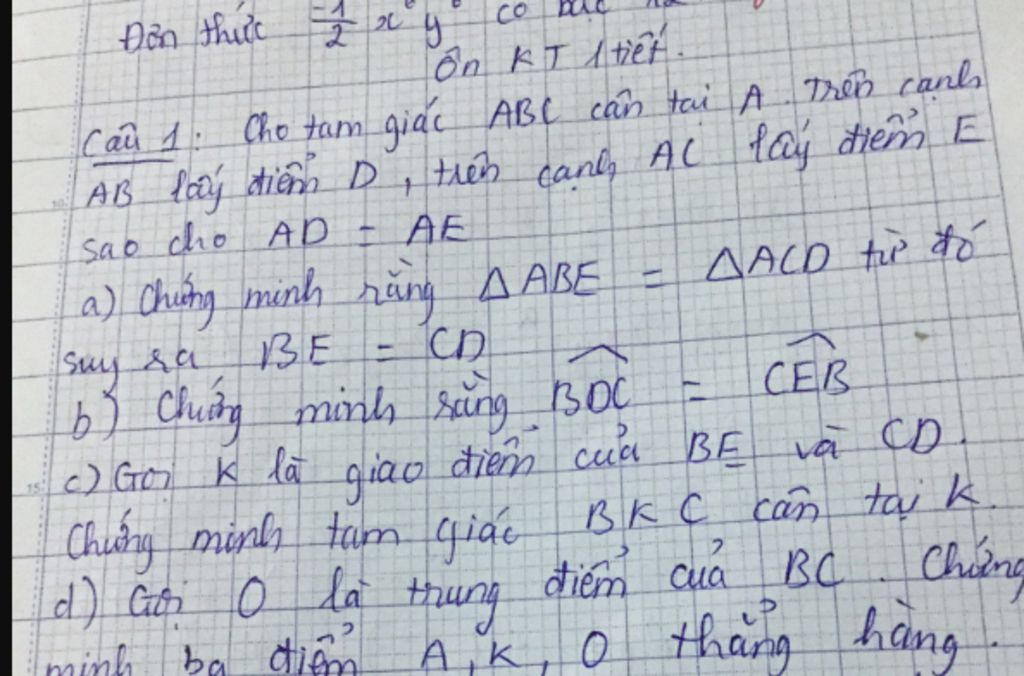 Đơn thức -1/2 x y có bậc
Ôn KT 1 tiết.
Câu 1: Cho tam giác ABC cân tại A. Trên cạnh
AB lấy điểm D, trên cạnh AC lấy điểm E
sao cho AD = AE
a) Chứng minh rằng ΔABE = ΔACD từ đó
suy ra BE = CD
b) Chứng minh rằng \widehat{BDC} = \widehat{CEB}
c) Gọi K là giao điểm của BE và CD.
Chứng minh tam giác BKC cân tại K.
d) Gọi O là trung điểm của BC. Chứng
minh ba điểm A, K, O thẳng hàng.